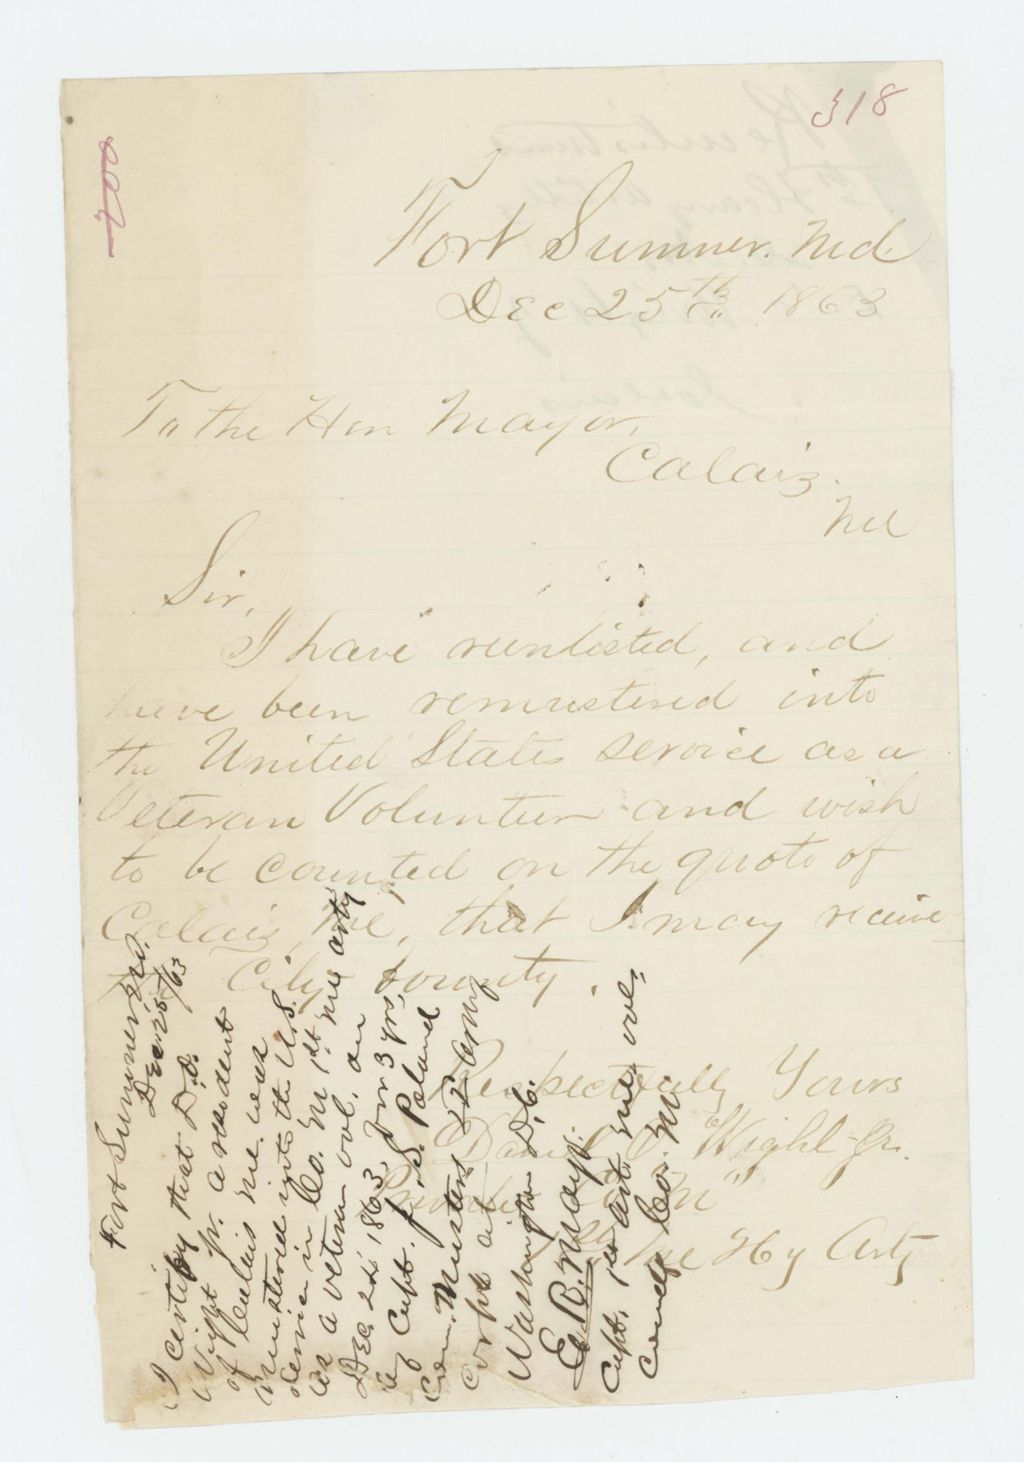 318
700
Fort Sumner. Md.
Dec 25th 1863
To the Hon Mayor,
Calais.
Me
Sir,
I have reenlisted, and
have been remustered into
the United States service as a
Veteran Volunteer and wish
to be counted on the quota of
Calais, Me, that I may receive
City bounty.
Respectfully Yours
Wight Jr.
Private "M"
Me Hy Arty
Fort Sumner, Md.
Dec 25/63
I certify that D. O.
Wight Jr. a resident
of Calais Me. was
mustered into the U.S.
service in Co. M 1st Me Arty
as a veteran vol. on
Dec. 2d, 1863, for 3 yrs,
by Capt. J. S. Poland
Com. Musters 22 Army
Corps at
Washington D.C.
Capt. 1st Art. Me. Vols
Comdg Co. M.